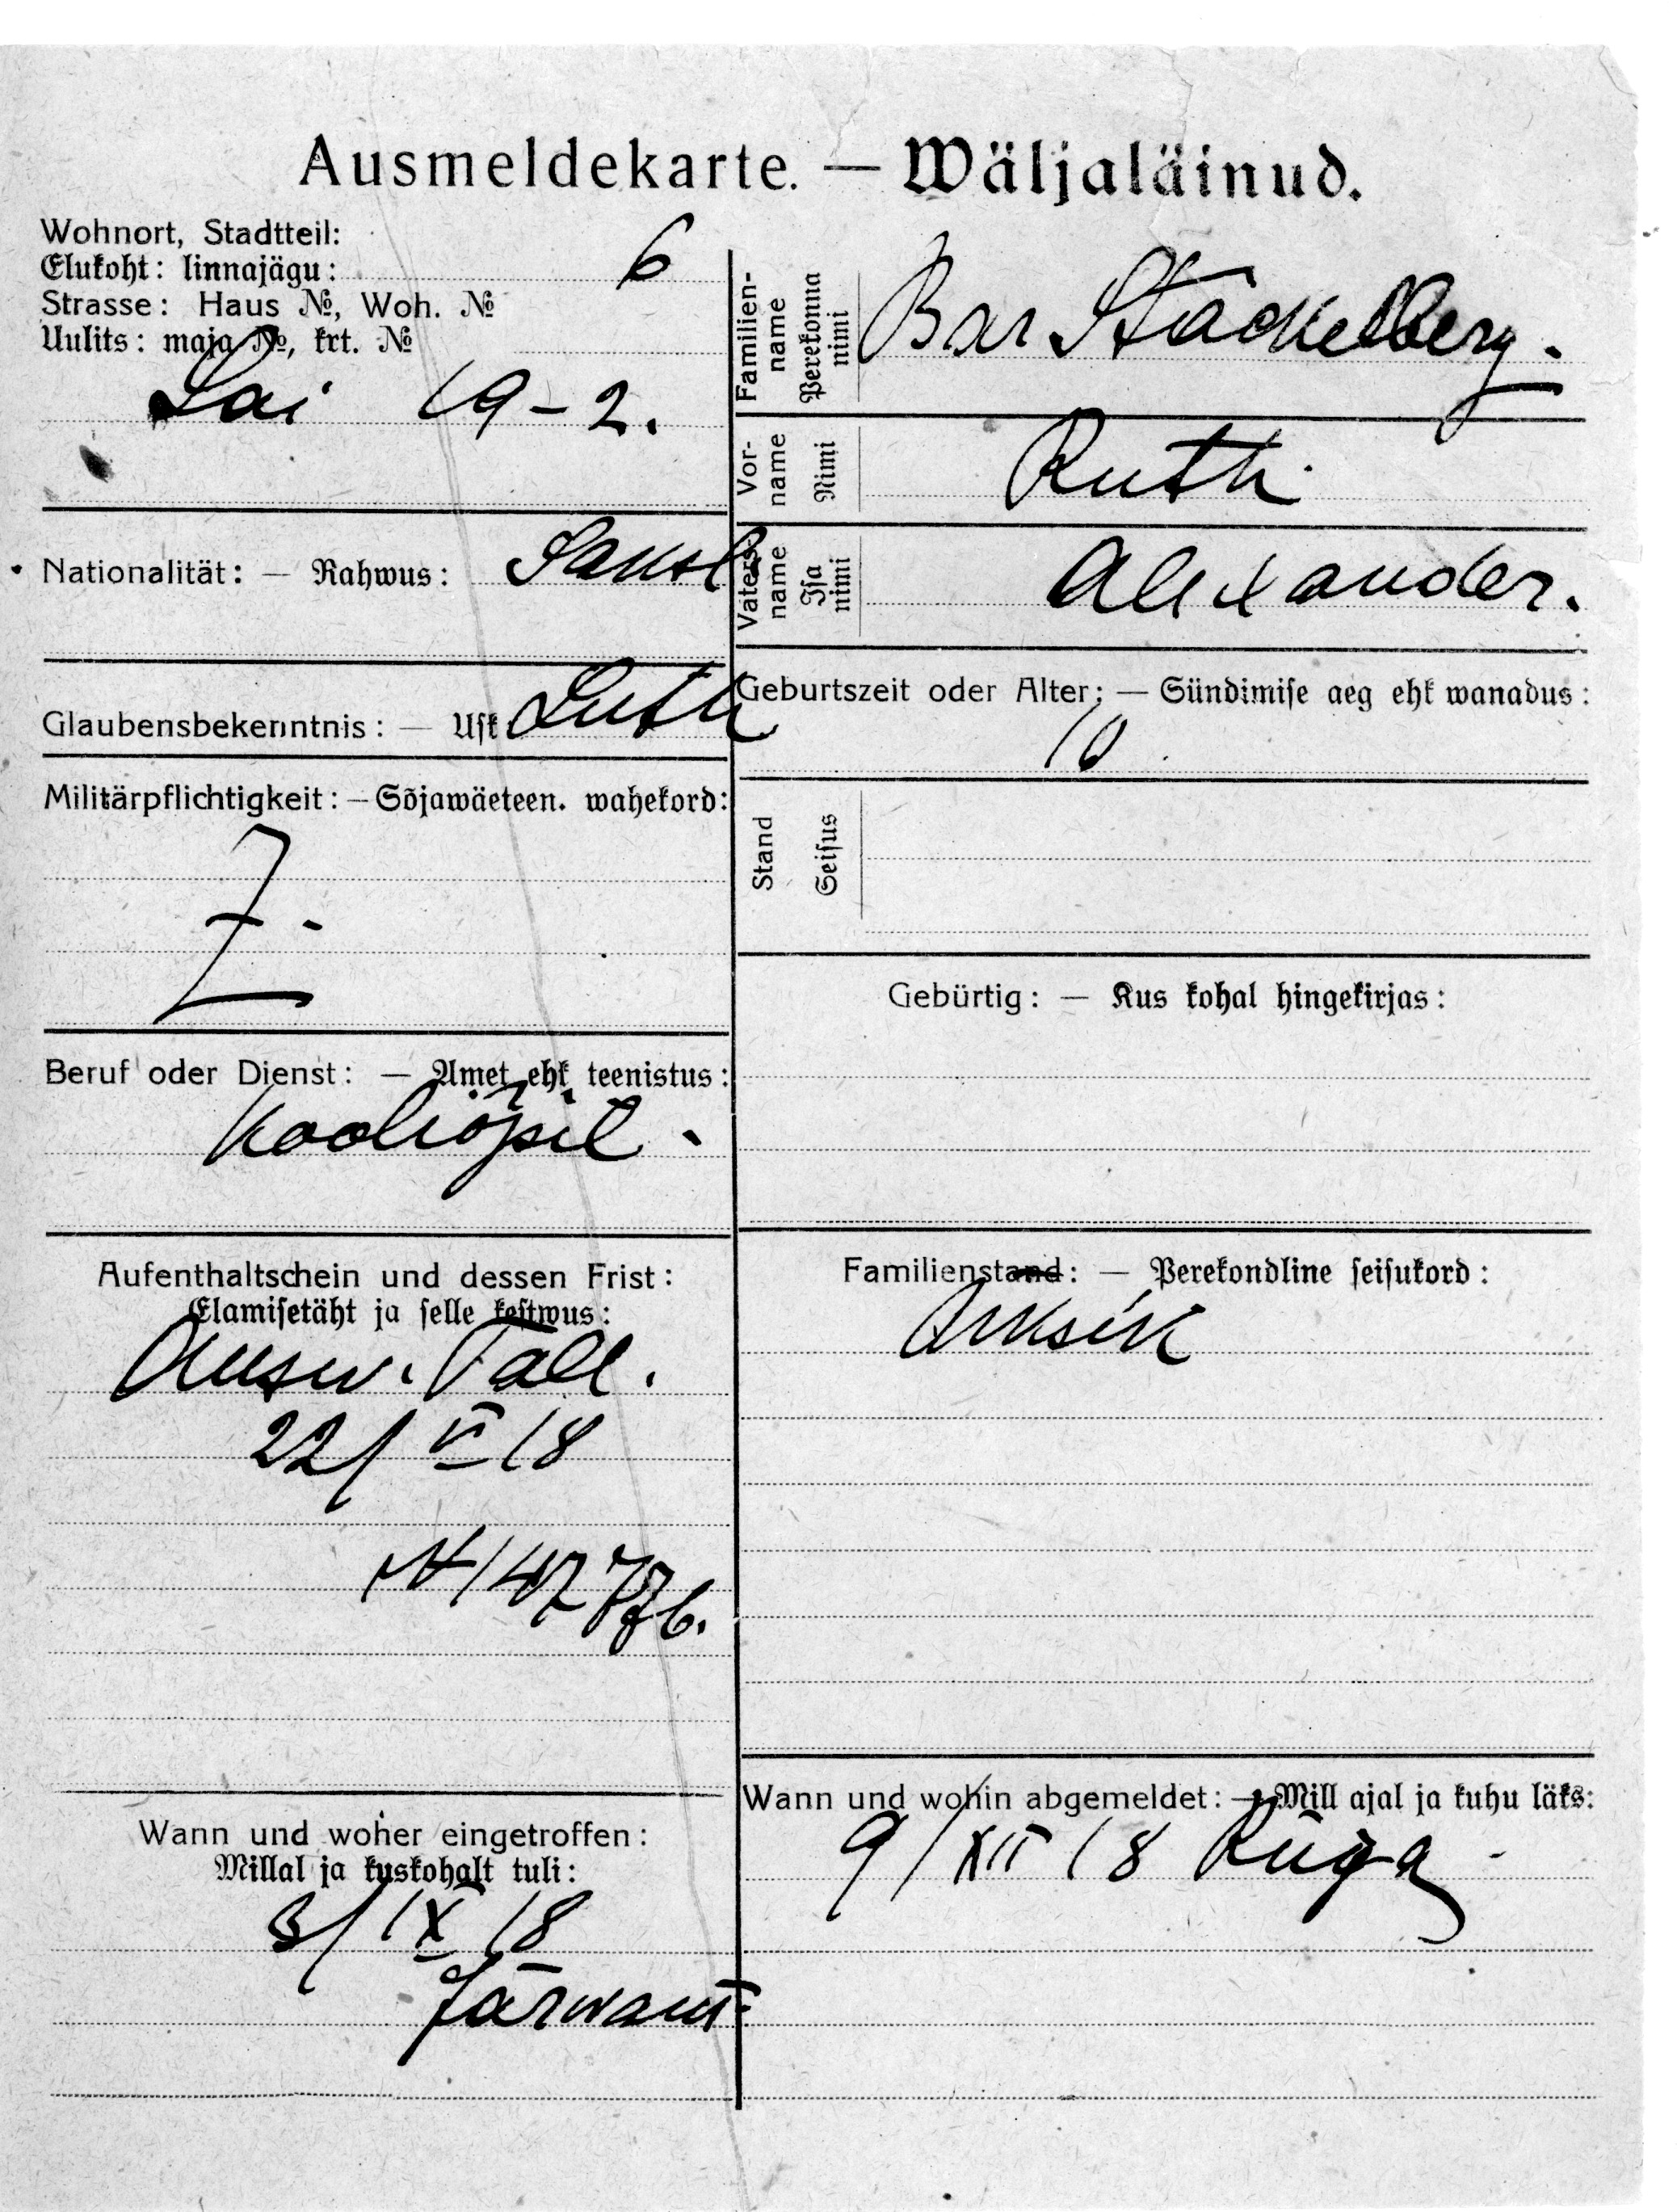 Ausmeldekarte. — Wäljaläinud.
Wohnort, Stadtteil:
Elukoht: linnajägu: 6
Strasse: Haus №, Woh. №
Uulits: maja №, krt. №
Lai 19-2.
Nationalität: — Rahwus: Saksl.
Glaubensbekenntnis: — Usk Luth
Militärpflichtigkeit: — Sõjawäeteen. wahekord:
Beruf oder Dienst: — Amet ehk teenistus:
Kooliõpil.
Aufenthaltschein und dessen Frist:
Elamisetäht ja selle kestwus:
Ausw. Tall.
22/ VI 18
N 147776.
Wann und woher eingetroffen:
Millal ja kuskohalt tuli:
3/ IX 18
Järwam
Familien-
name
Perekonna
nimi
Bar Stackelberg.
Vor-
name
Nimi
Ruth
Vaters
name
Isa
nimi
Alexander.
Geburtszeit oder Alter: — Sündimise aeg ehk wanadus:
Stand
Seisus
Gebürtig: — Kus kohal hingekirjas:
Familienstand: — Perekondline seisukord:
Üksik
Wann und wohin abgemeldet: — Mill ajal ja kuhu läks:
9/XII 18 Riiga